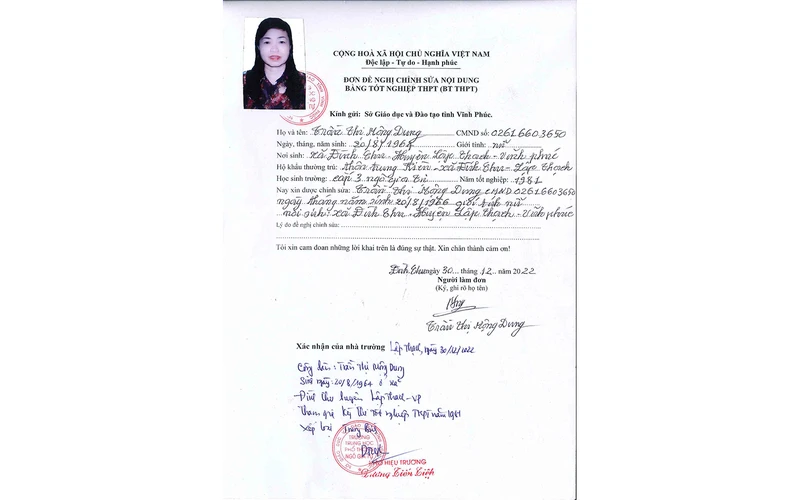 CỘNG HOÀ XÃ HỘI CHỦ NGHĨA VIỆT NAM
Độc lập - Tự do - Hạnh phúc
ĐƠN ĐỀ NGHỊ CHỈNH SỬA NỘI DUNG
BẰNG TỐT NGHIỆP THPT (BT THPT)
Kính gửi: Sở Giáo dục và Đào tạo tỉnh Vĩnh Phúc.
Họ và tên: Trần Thị Hồng Dung CMND số: 02616603650
Ngày, tháng, năm sinh: 20/8/196 Giới tính: nữ
Nơi sinh: xã Đình Chu - Huyện Lập Thạch - Vĩnh phúc
Hộ khẩu thường trú: thôn trung Kiên - xã Đình Chu - Lập Thạch
Học sinh trường: cấp 3 ngô Gia Tự Năm tốt nghiệp: 1981
Nay xin được chỉnh sửa: Trần Thị Hồng Dung CMND 02616603650
ngày tháng năm sinh 20/8/1966 giới tính nữ
nơi sinh: xã Đình Chu - Huyện Lập Thạch - Vĩnh phúc
Lý do đề nghị chỉnh sửa:
Tôi xin cam đoan những lời khai trên là đúng sự thật. Xin chân thành cảm ơn!
Đình Chu ngày 30 tháng 12 năm 2022
Người làm đơn
(Ký, ghi rõ họ tên)
Trần Thị Hồng Dung
Xác nhận của nhà trường Lập Thạch, ngày 30/12/2022
Trần Thị Hồng Dung
Sinh ngày: 20/8/1964 ở xã
Đình Chu huyện Lập Thạch - VP
Tham gia kỳ thi tốt nghiệp THPT năm 1981
xếp loại Trung bình
TRƯỜNG
TRUNG HỌC
PHỔ THÔNG
NGÔ GIA TỰ
PHÓ HIỆU TRƯỞNG